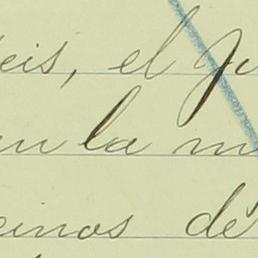 eis, el Ju
en la m
einos de